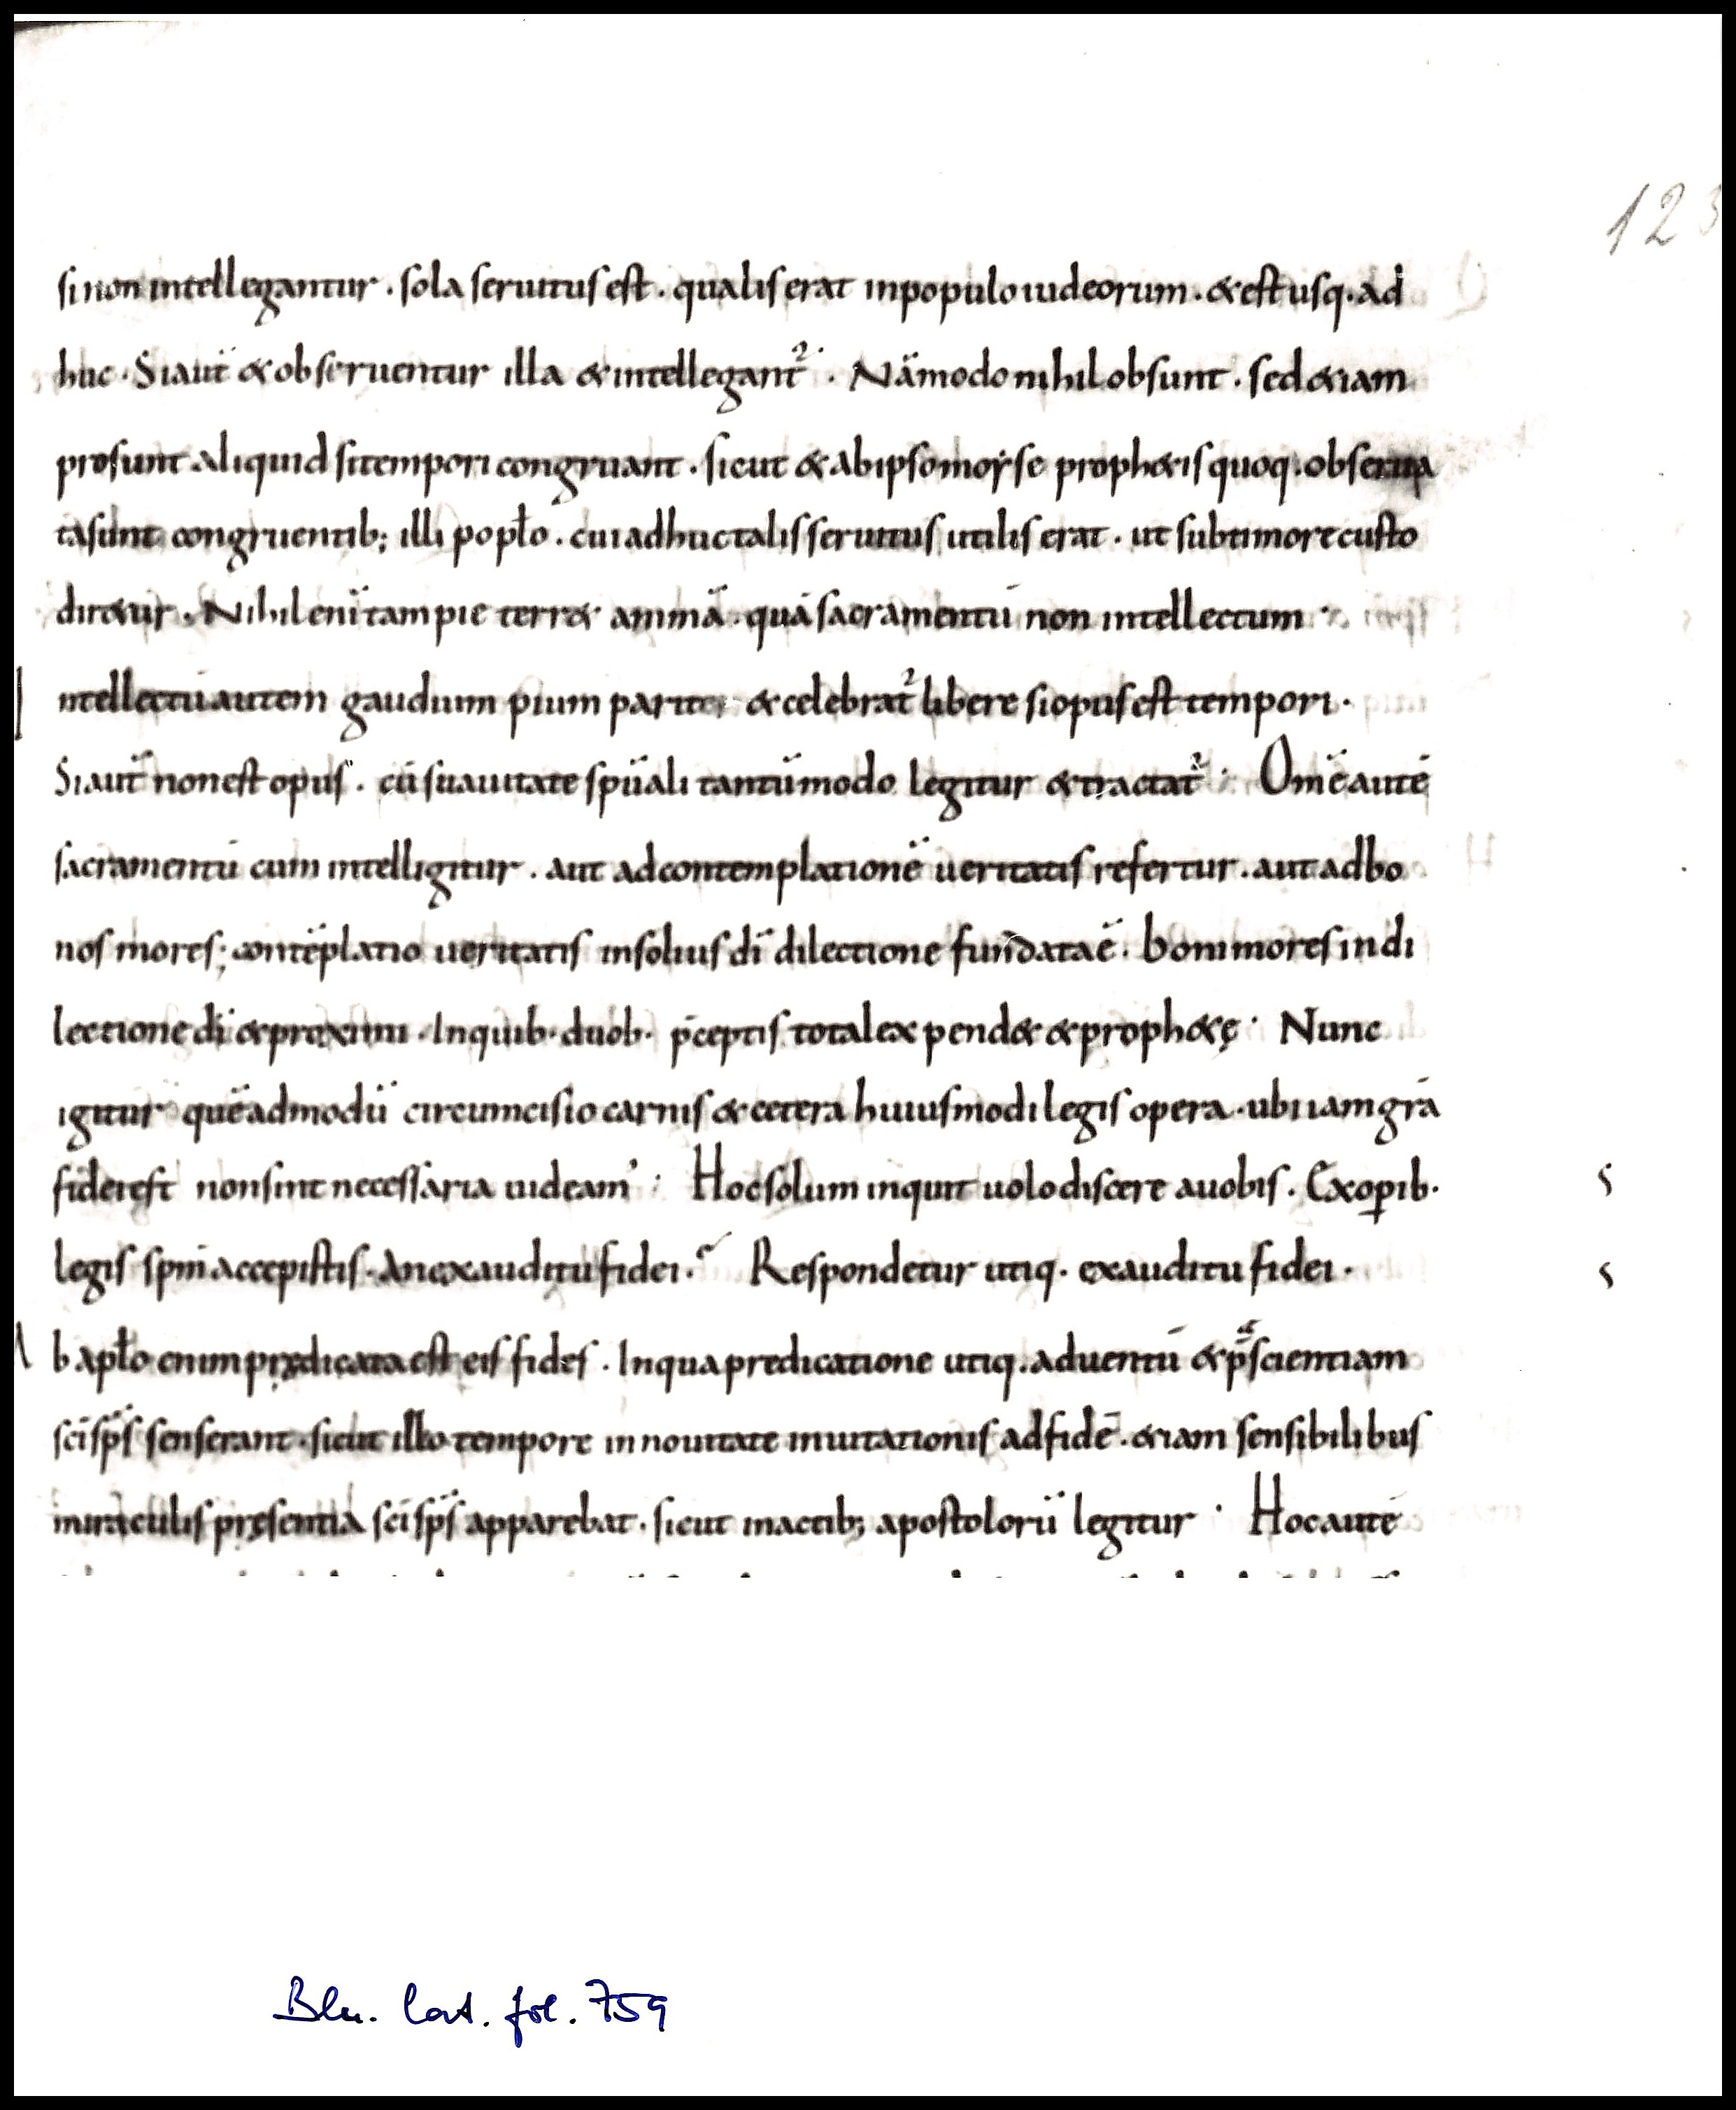 123
si non intellegantur . sola seruitus est . qualis erat in populo iudeorum . & est usq. ad
huc . Si aut̄ & obseruentur illa & intellegant̉ . Nā modo nihil obsunt . sed &iam
prosunt aliquid si tempori congruant . sicut & ab ipso moẏse proph&is quoq. obserua
ta sunt congruentib; illi popło . cui adhuc talis seruitus utilis erat . ut sub timore custo
dir&ur . Nihil enī tam pie terr& animā . quā sacramentū non intellectum
Intellectū autem gaudium pium parit & celebrat̉ libere si opus est tempori .
Si aut̄ non est opus . cū suauitate sp̄uali tantūmodo legitur & tractat̉ . Om̄e autē
sacramentū cum intelligitur . aut ad contemplationē ueritatis refertur . aut ad bo
nos mores; contēplatio ueritatis in solius dī dilectione fundata ē . boni mores in di
lectione dī & proximi . In quib. duob. p̄ceptis tota lex pend& & proph&ę . Nunc
igitur quēadmodū circumcisio carnis & cetera huiusmodi legis opera . ubi iam gr̄a
fidei est non sint necessaria uideam̉ . Hoc solum inquit uolo discere a uobis . Ex oꝑib.
legis sp̄m accepistis . An ex auditu fidei . Respondetur utiq. ex auditu fidei .
Ab apło enim prędicata est eis fides . In qua predicatione utiq. aduentū & p̄scientiam
sc̄i sp̄s senserant . sicut illo tempore in nouitate inuitationis ad fidē . &iam sensibilibus
miraculis pręsentia sc̄i sp̄s apparebat . sicut in actib; apostolorū legitur . Hoc autē
Bln. lat. fol. 759